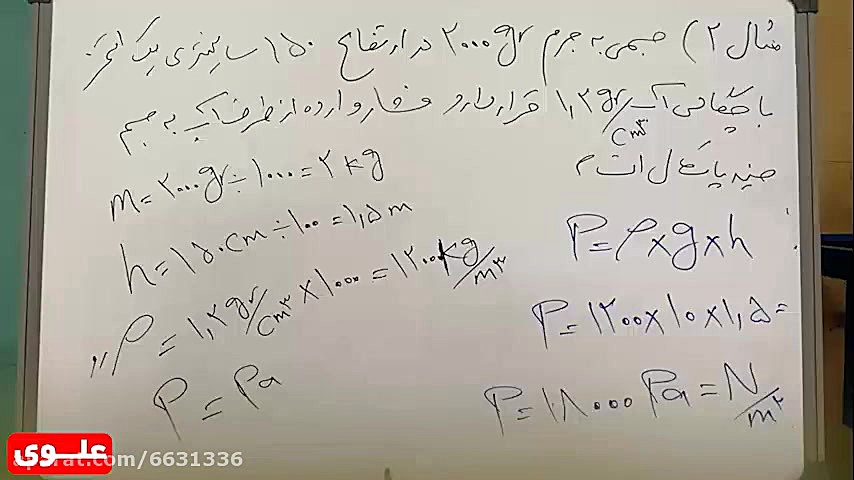 مثال ۲) جسمی به جرم ۲۰۰۰gr در ارتفاع ۱۵۰ سانتیمتری یک
با چگالی آب ۱٫۲gr/cm³ قرار دارد فشار وارده از طرف آب به جسم
چند پاسکال است ؟
m = ۲۰۰۰gr ÷ ۱۰۰۰ = ۲ kg
h = ۱۵۰cm ÷ ۱۰۰ = ۱٫۵ m
ρ = ۱٫۲gr/cm³ × ۱۰۰۰ = ۱۲۰۰ kg/m³
P = Pa
P = ρ × g × h
P = ۱۲۰۰ × ۱۰ × ۱٫۵ =
P = ۱۸۰۰۰ Pa = N/m²
علـوی
aparat.com/6631336